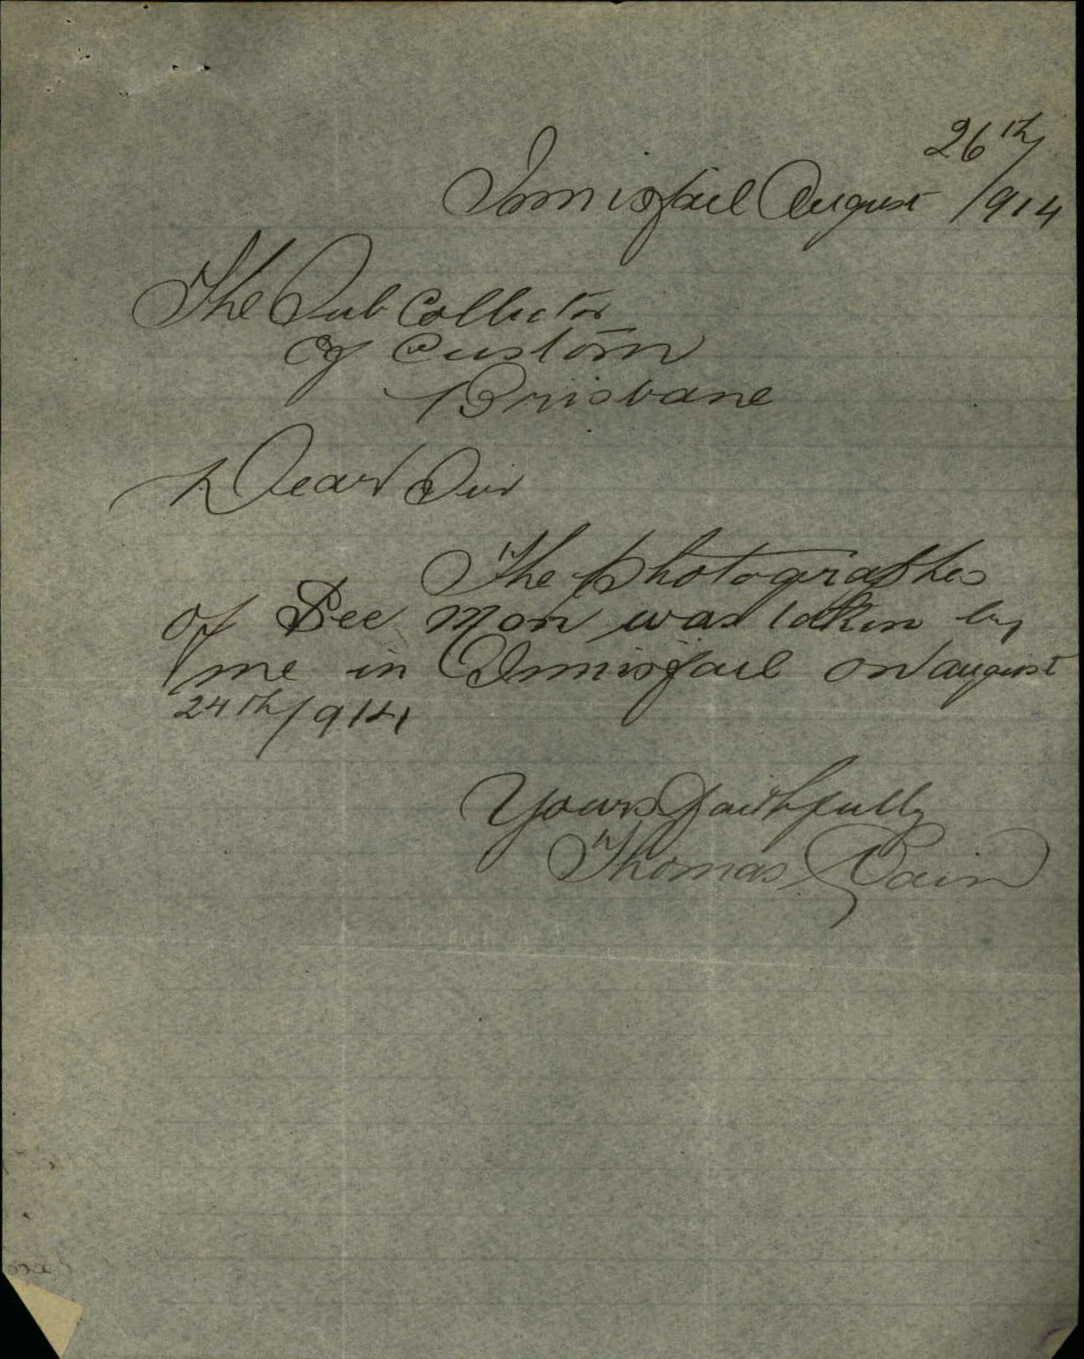 26th/
Innisfail August 1914
The Sub Collector
of Custom
Brisbane
Dear Sir
The photographes
of See Mon was taken by
me in Innisfail on august
24th/914
Yours faithfully
Thomas Pain